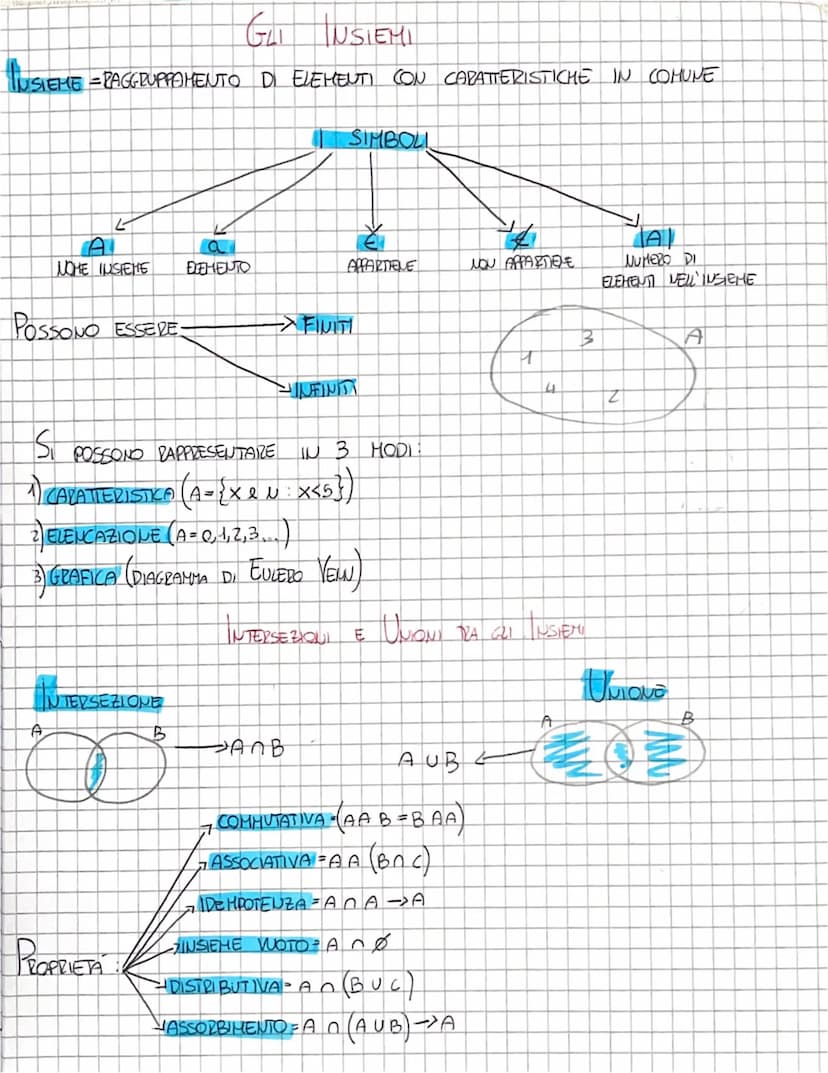 GLI INSIEMI
INSIEME = RAGGRUPPAMENTO DI ELEMENTI CON CARATTERISTICHE IN COMUNE
I SIMBOLI
A a ∈ ∉ |A|
NOME INSIEME ELEMENTO APPARTIENE NON APPARTIENE NUMERO DI
ELEMENTI NELL'INSIEME
POSSONO ESSERE FINITI
INFINITI
A
3
1
4 2
SI POSSONO RAPPRESENTARE IN 3 MODI:
1) CARATTERISTICA (A={X ∈ N : X<5})
2) ELENCAZIONE (A=0,1,2,3...)
3) GRAFICA (DIAGRAMMA DI EULERO VENN)
INTERSEZIONI E UNIONI TRA GLI INSIEMI
INTERSEZIONE
A B
A∩B
UNIONE
A B
A∪B
PROPRIETÀ:
COMMUTATIVA=(A∩B=B∩A)
ASSOCIATIVA=A∩(B∩C)
IDEMPOTENZA=A∩A→A
INSIEME VUOTO=A∩∅
DISTRIBUTIVA=A∩(B∪C)
ASSORBIMENTO=A∩(A∪B)→A